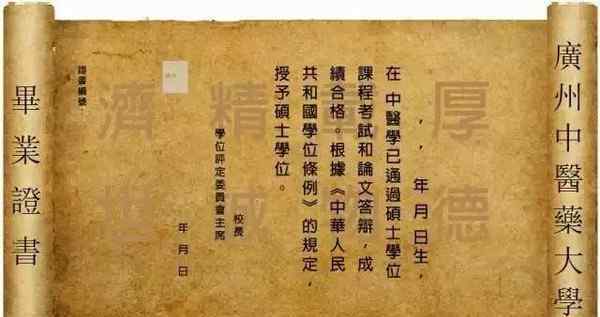 廣州中醫藥大學
， ， 年 月 日生，
在 中醫學已通過碩士學位
課程考試和論文答辯，成
績合格。根據《中華人民
共和國學位條例》的規定，
授予碩士學位。
校長
學位評定委員會主席
年 月 日
證書編號
畢業證書
厚德
精誠
濟